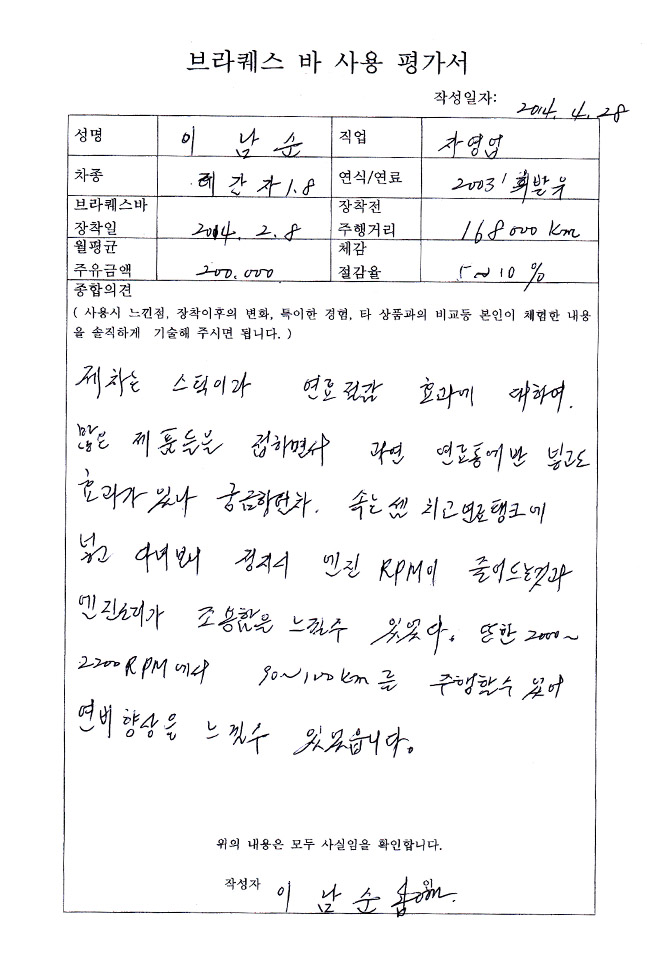 브라퀘스 바 사용 평가서
작성일자: 2014. 4. 28
성명 이 남 순 직업 자영업
차종 레간자 1.8 연식/연료 2003' 휘발유
브라퀘스바 장착전
장착일 2014. 2. 8 주행거리 168000 Km
월평균 체감
주유금액 200.000 절감율 5~10 %
종합의견
( 사용시 느낀점, 장착이후의 변화, 특이한 경험, 타 상품과의 비교등 본인이 체험한 내용
을 솔직하게 기술해 주시면 됩니다. )
제차는 스틱이라 연료절감 효과에 대하여.
많은 제품들을 접하면서 과연 연료통에만 넣고도
효과가 있나 궁금하던차. 속는셈 치고 연료탱크에
넣고 다녀보니 정지시 엔진 RPM이 줄어드는것과
엔진소리가 조용함을 느낄수 있었다. 또한 2000~
2200RPM에서 90~100km를 주행할수 있어
연비향상을 느낄수 있었습니다.
위의 내용은 모두 사실임을 확인합니다.
작성자 이 남 순 인